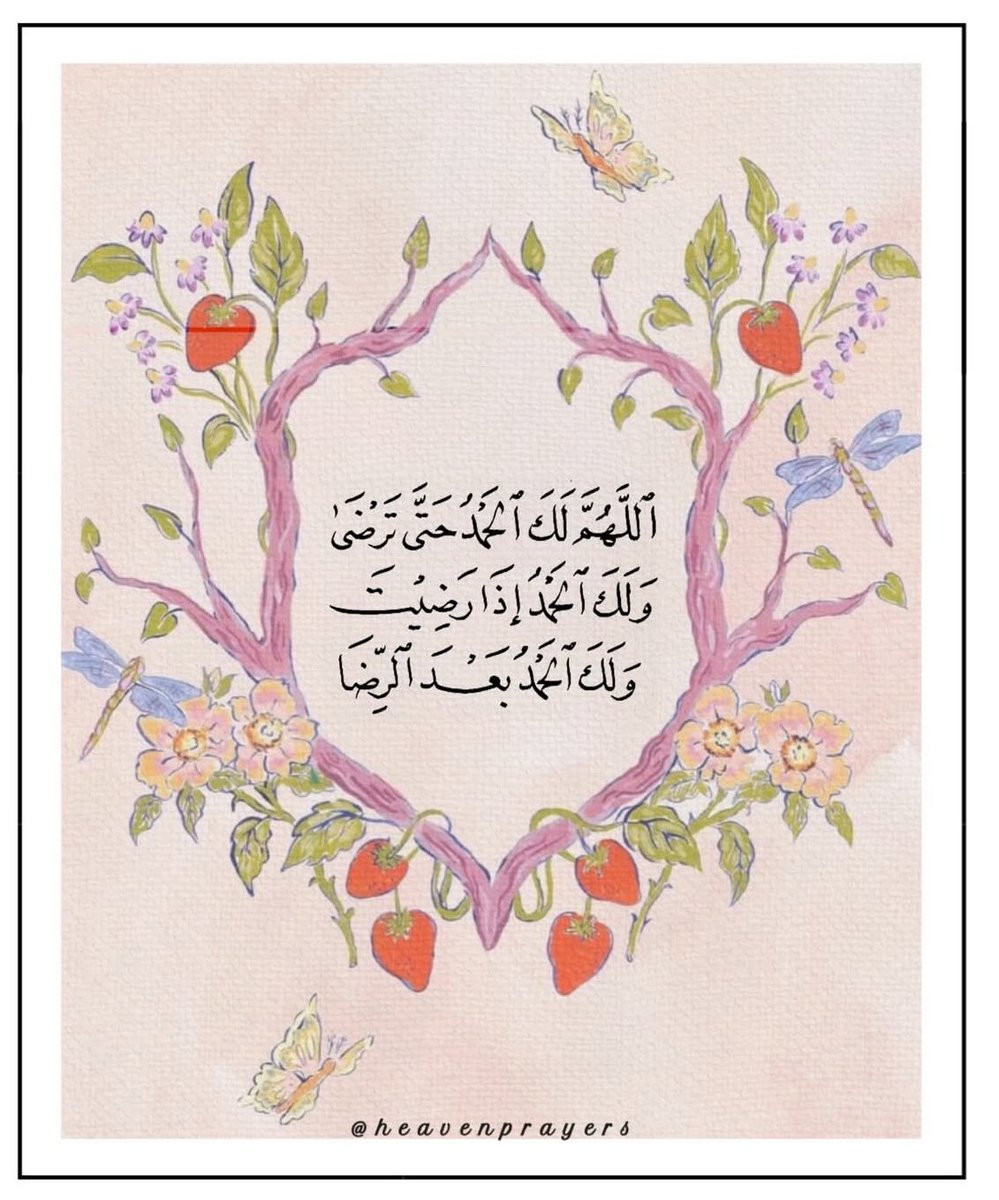 ٱللَّهُمَّ لَكَ ٱلْحَمْدُ حَتَّىٰ تَرْضَىٰ
وَلَكَ ٱلْحَمْدُ إِذَا رَضِيْتَ
وَلَكَ ٱلْحَمْدُ بَعْدَ ٱلرِّضَا
@heavenprayers